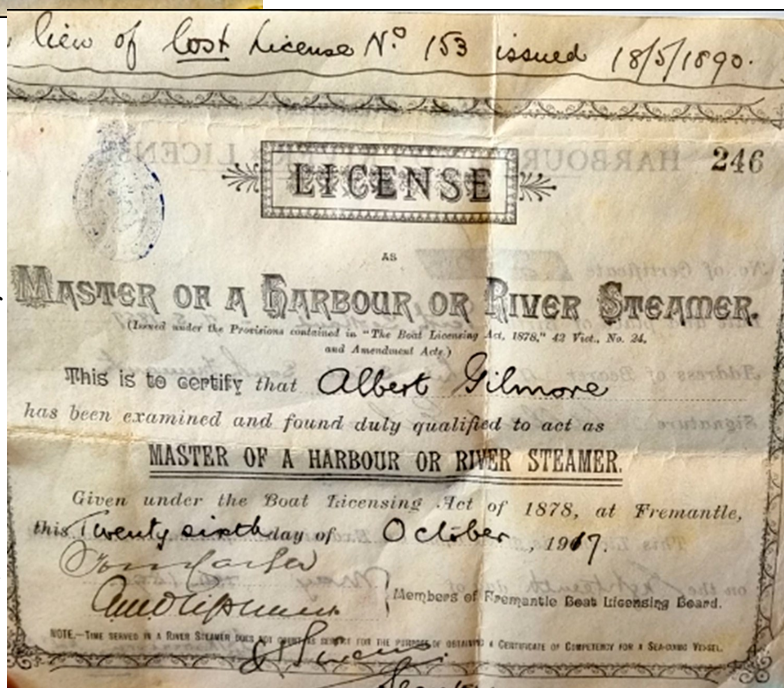 lieu of Lost License Nº 153 issued 18/5/1890.
246
LICENSE
AS
MASTER OF A HARBOUR OR RIVER STEAMER.
(Issued under the Provisions contained in "The Boat Licensing Act, 1878," 42 Vict., No. 24,
and Amendment Acts.)
This is to certify that Albert Gilmore
has been examined and found duly qualified to act as
MASTER OF A HARBOUR OR RIVER STEAMER.
Given under the Boat Licensing Act of 1878, at Fremantle,
this Twenty sixth day of October, 1917.
Members of Fremantle Boat Licensing Board.
NOTE.—TIME SERVED IN A RIVER STEAMER DOES NOT COUNT AS SERVICE FOR THE PURPOSE OF OBTAINING A CERTIFICATE OF COMPETENCY FOR A SEA-GOING VESSEL.